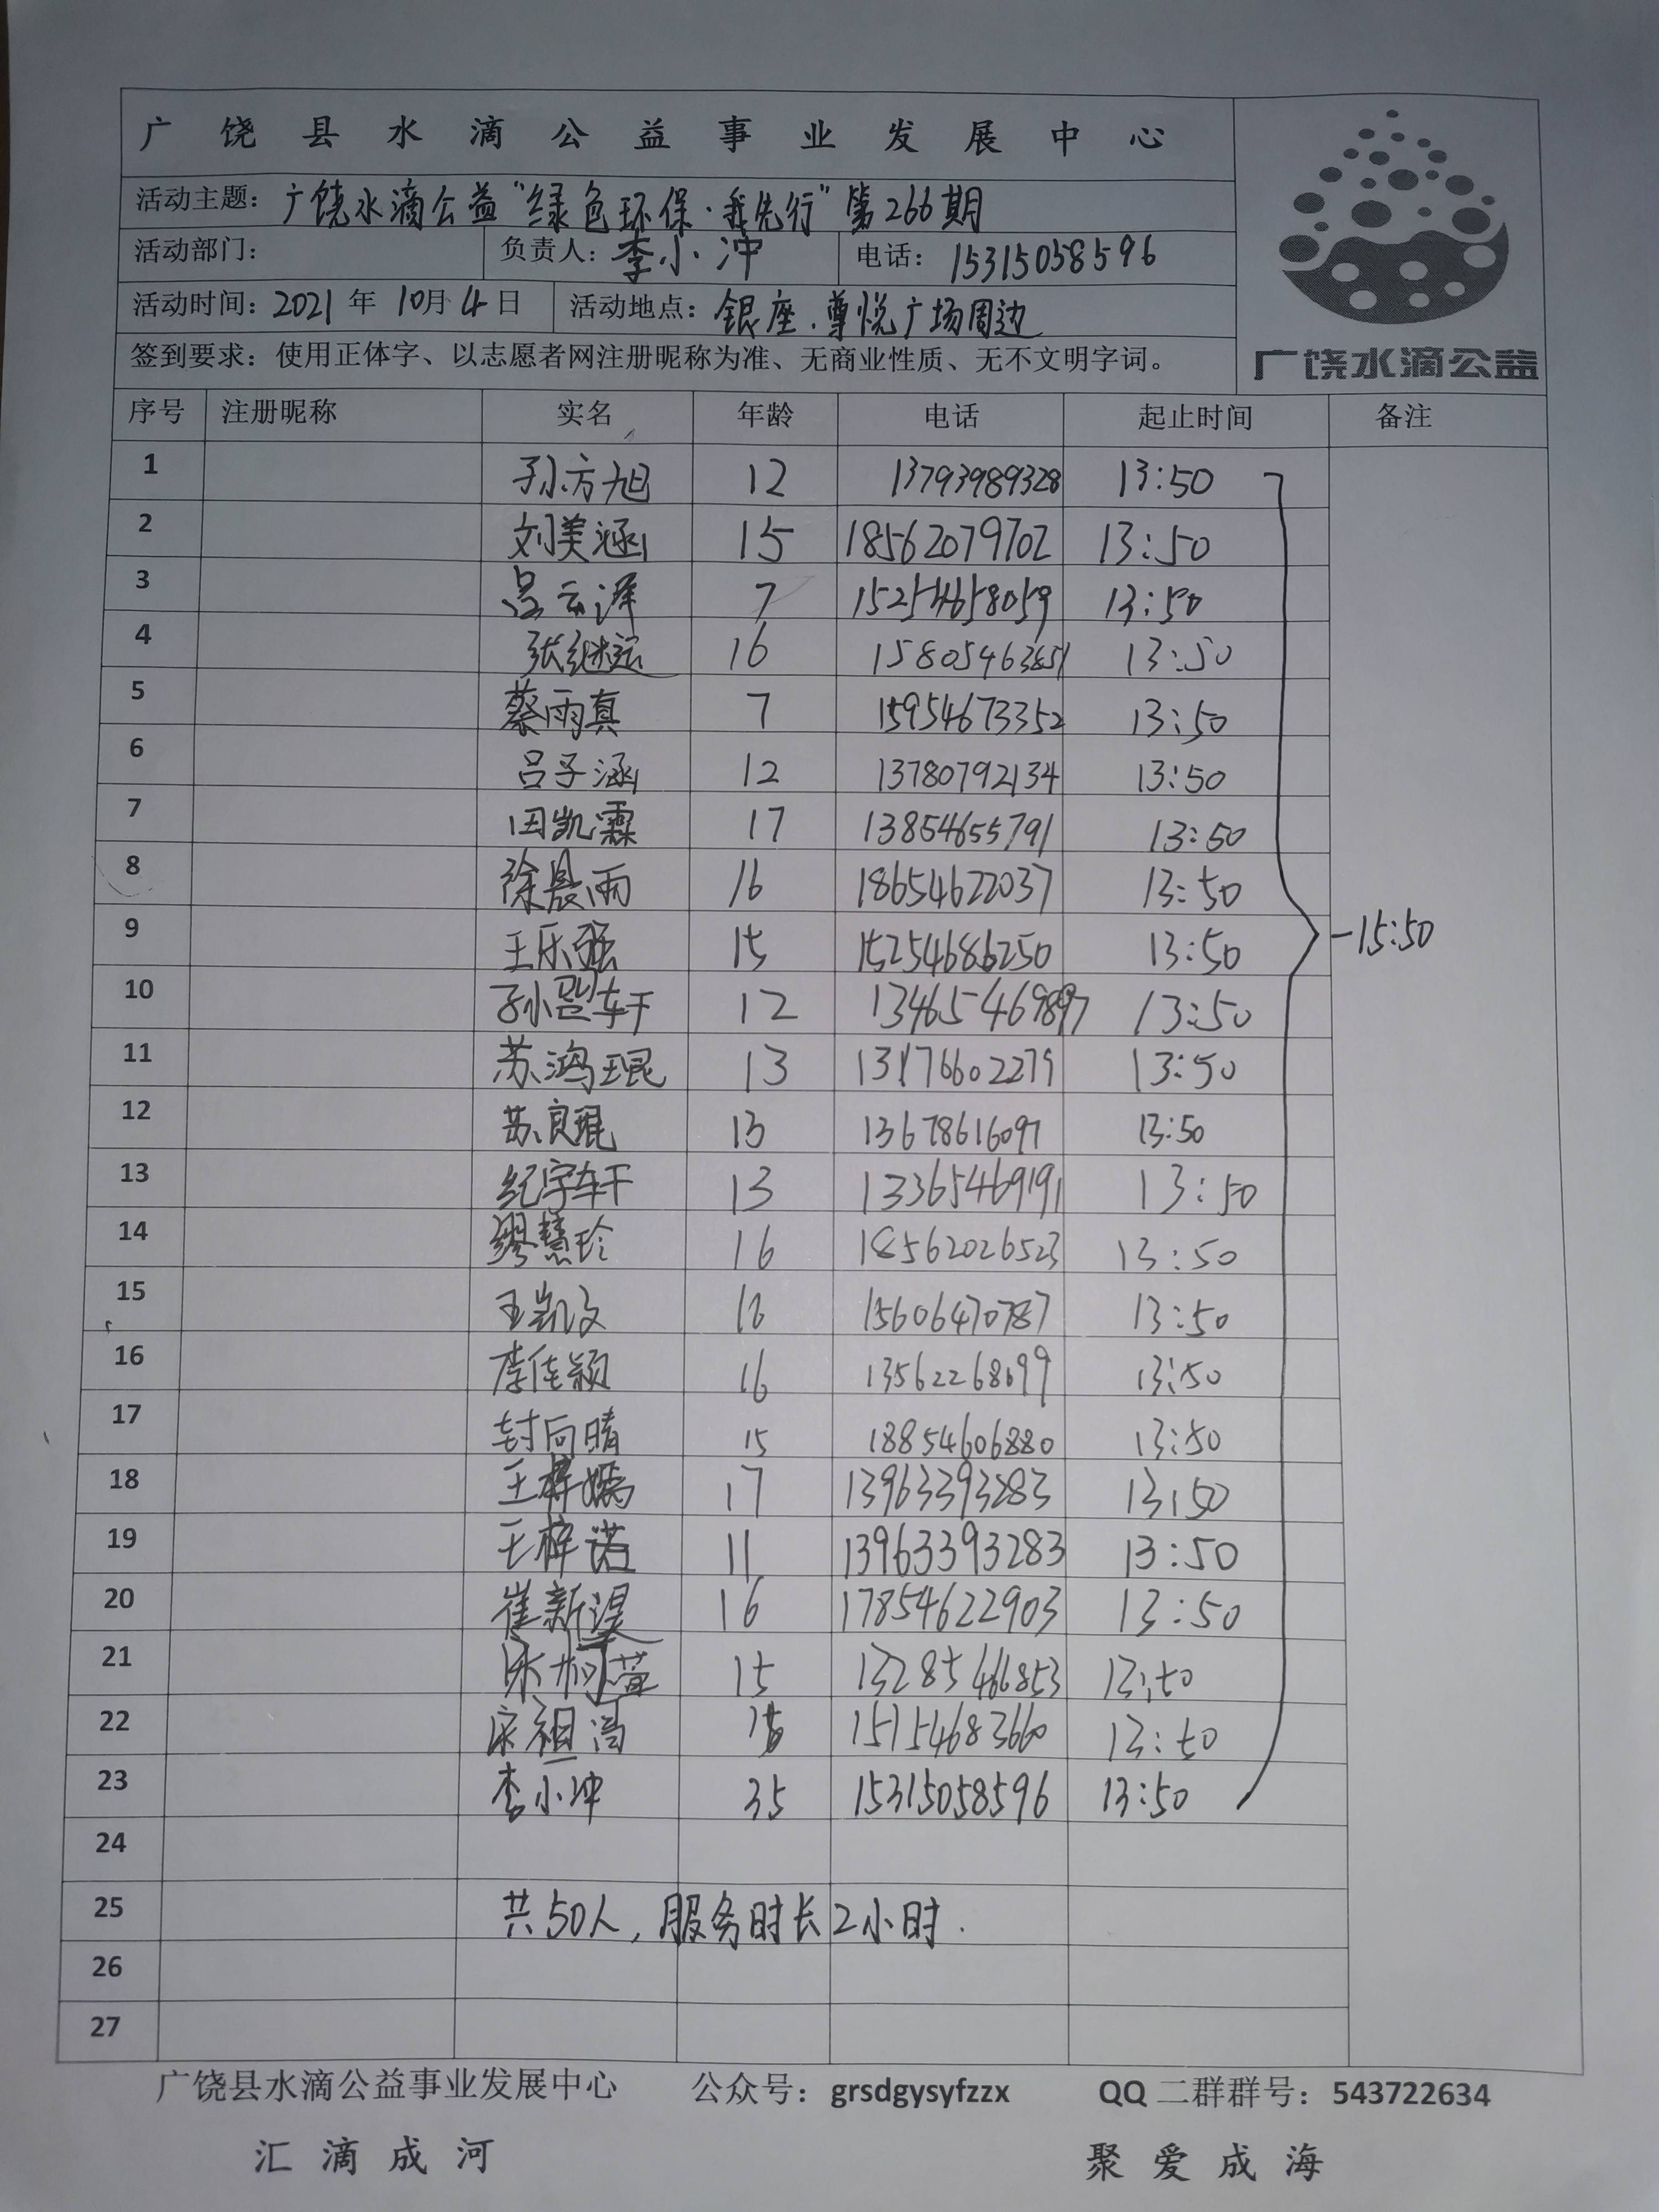 广饶县水滴公益事业发展中心
活动主题：广饶水滴公益“绿色环保·我先行”第266期
活动部门： 负责人：李小冲 电话：15315058596
活动时间：2021年10月4日 活动地点：银座.尊悦广场周边
签到要求：使用正体字、以志愿者网注册昵称为准、无商业性质、无不文明字词。
广饶水滴公益
序号 注册昵称 实名 年龄 电话 起止时间 备注
1 孙方旭 12 13793989328 13:50
2 刘美涵 15 18562079702 13:50
3 吕云泽 7 15254658059 13:50
4 张继远 16 15805463851 13:50
5 蔡雨真 7 15954673352 13:50
6 吕子涵 12 13780792134 13:50
7 田凯霖 17 13854655791 13:50
8 徐晨雨 16 18654622037 13:50
9 王乐强 15 15254686250 13:50 -15:50
10 12 13465469897 13:50
11 苏鸿琨 13 13176602279 13:50
12 苏良琨 13 13678616097 13:50
13 纪宇轩 13 13365469191 13:50
14 缪慧玲 16 18562026523 13:50
15 王凯文 16 15606470787 13:50
16 李佳颖 16 13562268699 13:50
17 封向晴 15 18854606880 13:50
18 王梓嫣 17 13963393283 13:50
19 王梓诺 11 13963393283 13:50
20 崔新 16 17854622903 13:50
21 15 13285466853 13:50
22 15154683660 13:50
23 李小冲 35 15315058596 13:50
24
25 共50人，服务时长2小时.
26
27
广饶县水滴公益事业发展中心 公众号：grsdgysyfzzx QQ二群群号：543722634
汇滴成河 聚爱成海